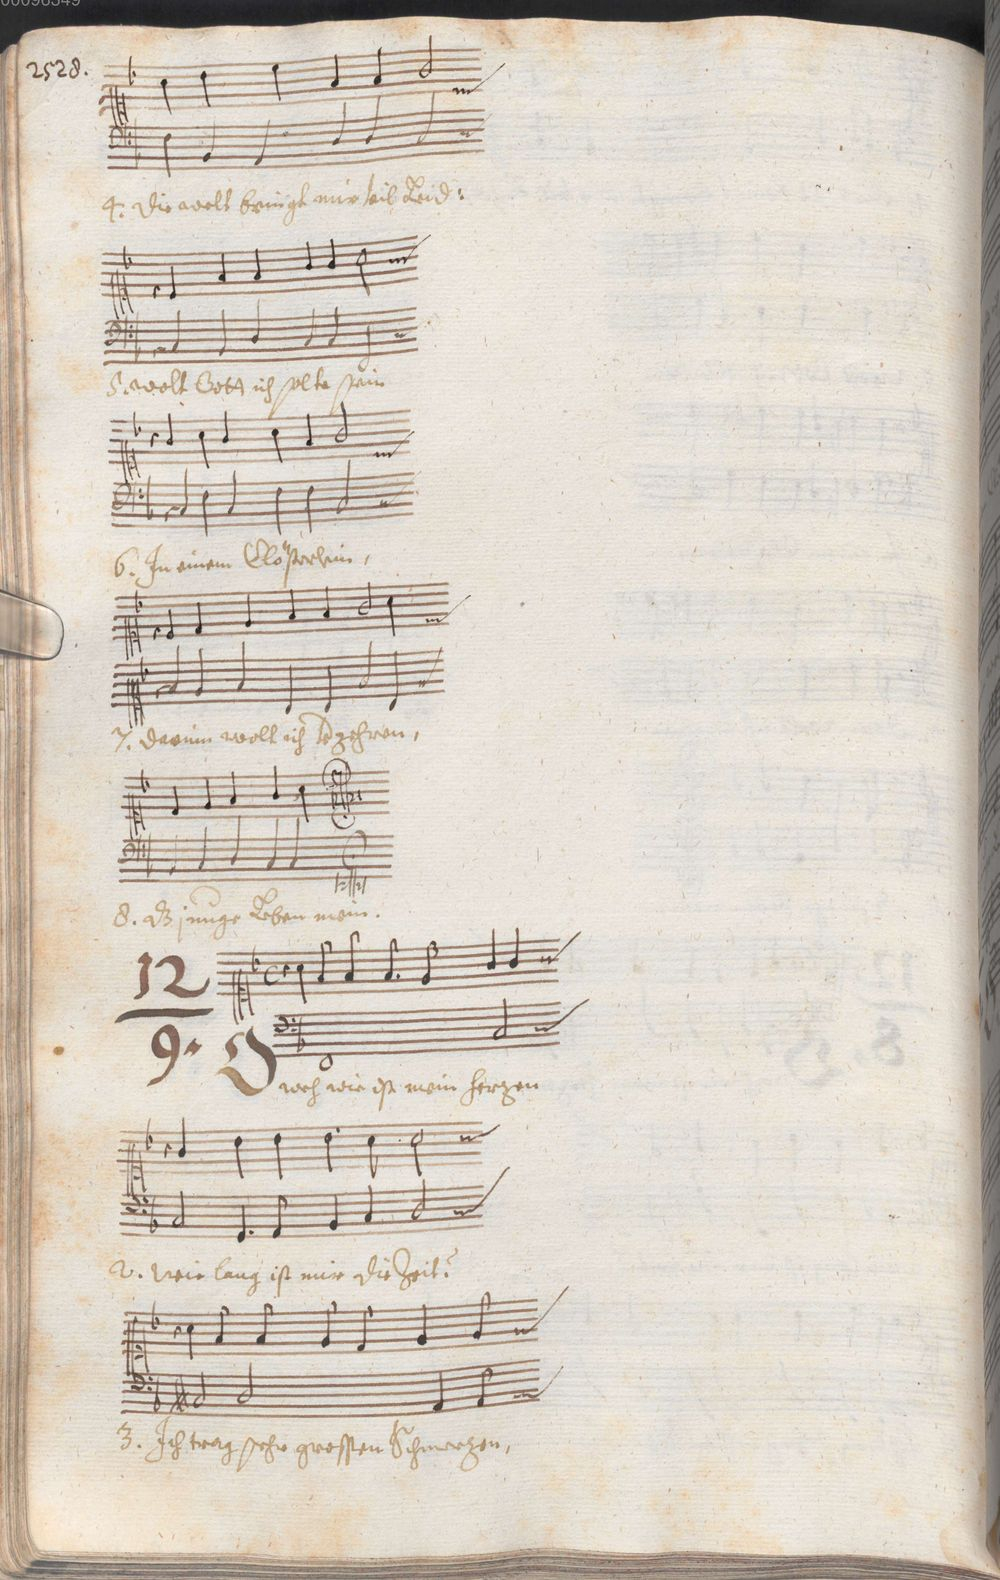 00096349
2528.
4. Die welt bringt mir vil Leid:
5. wolt Gott ich solte sein
6. In einem Clösterlein,
7. darinn wolt ich verzehren,
8. Dz junge Leben mein.
12
9. O weh wie ist mein herzen
2. wie lang ist mir die Zeit?
3. Ich trag sehr grossen Schmerzen,